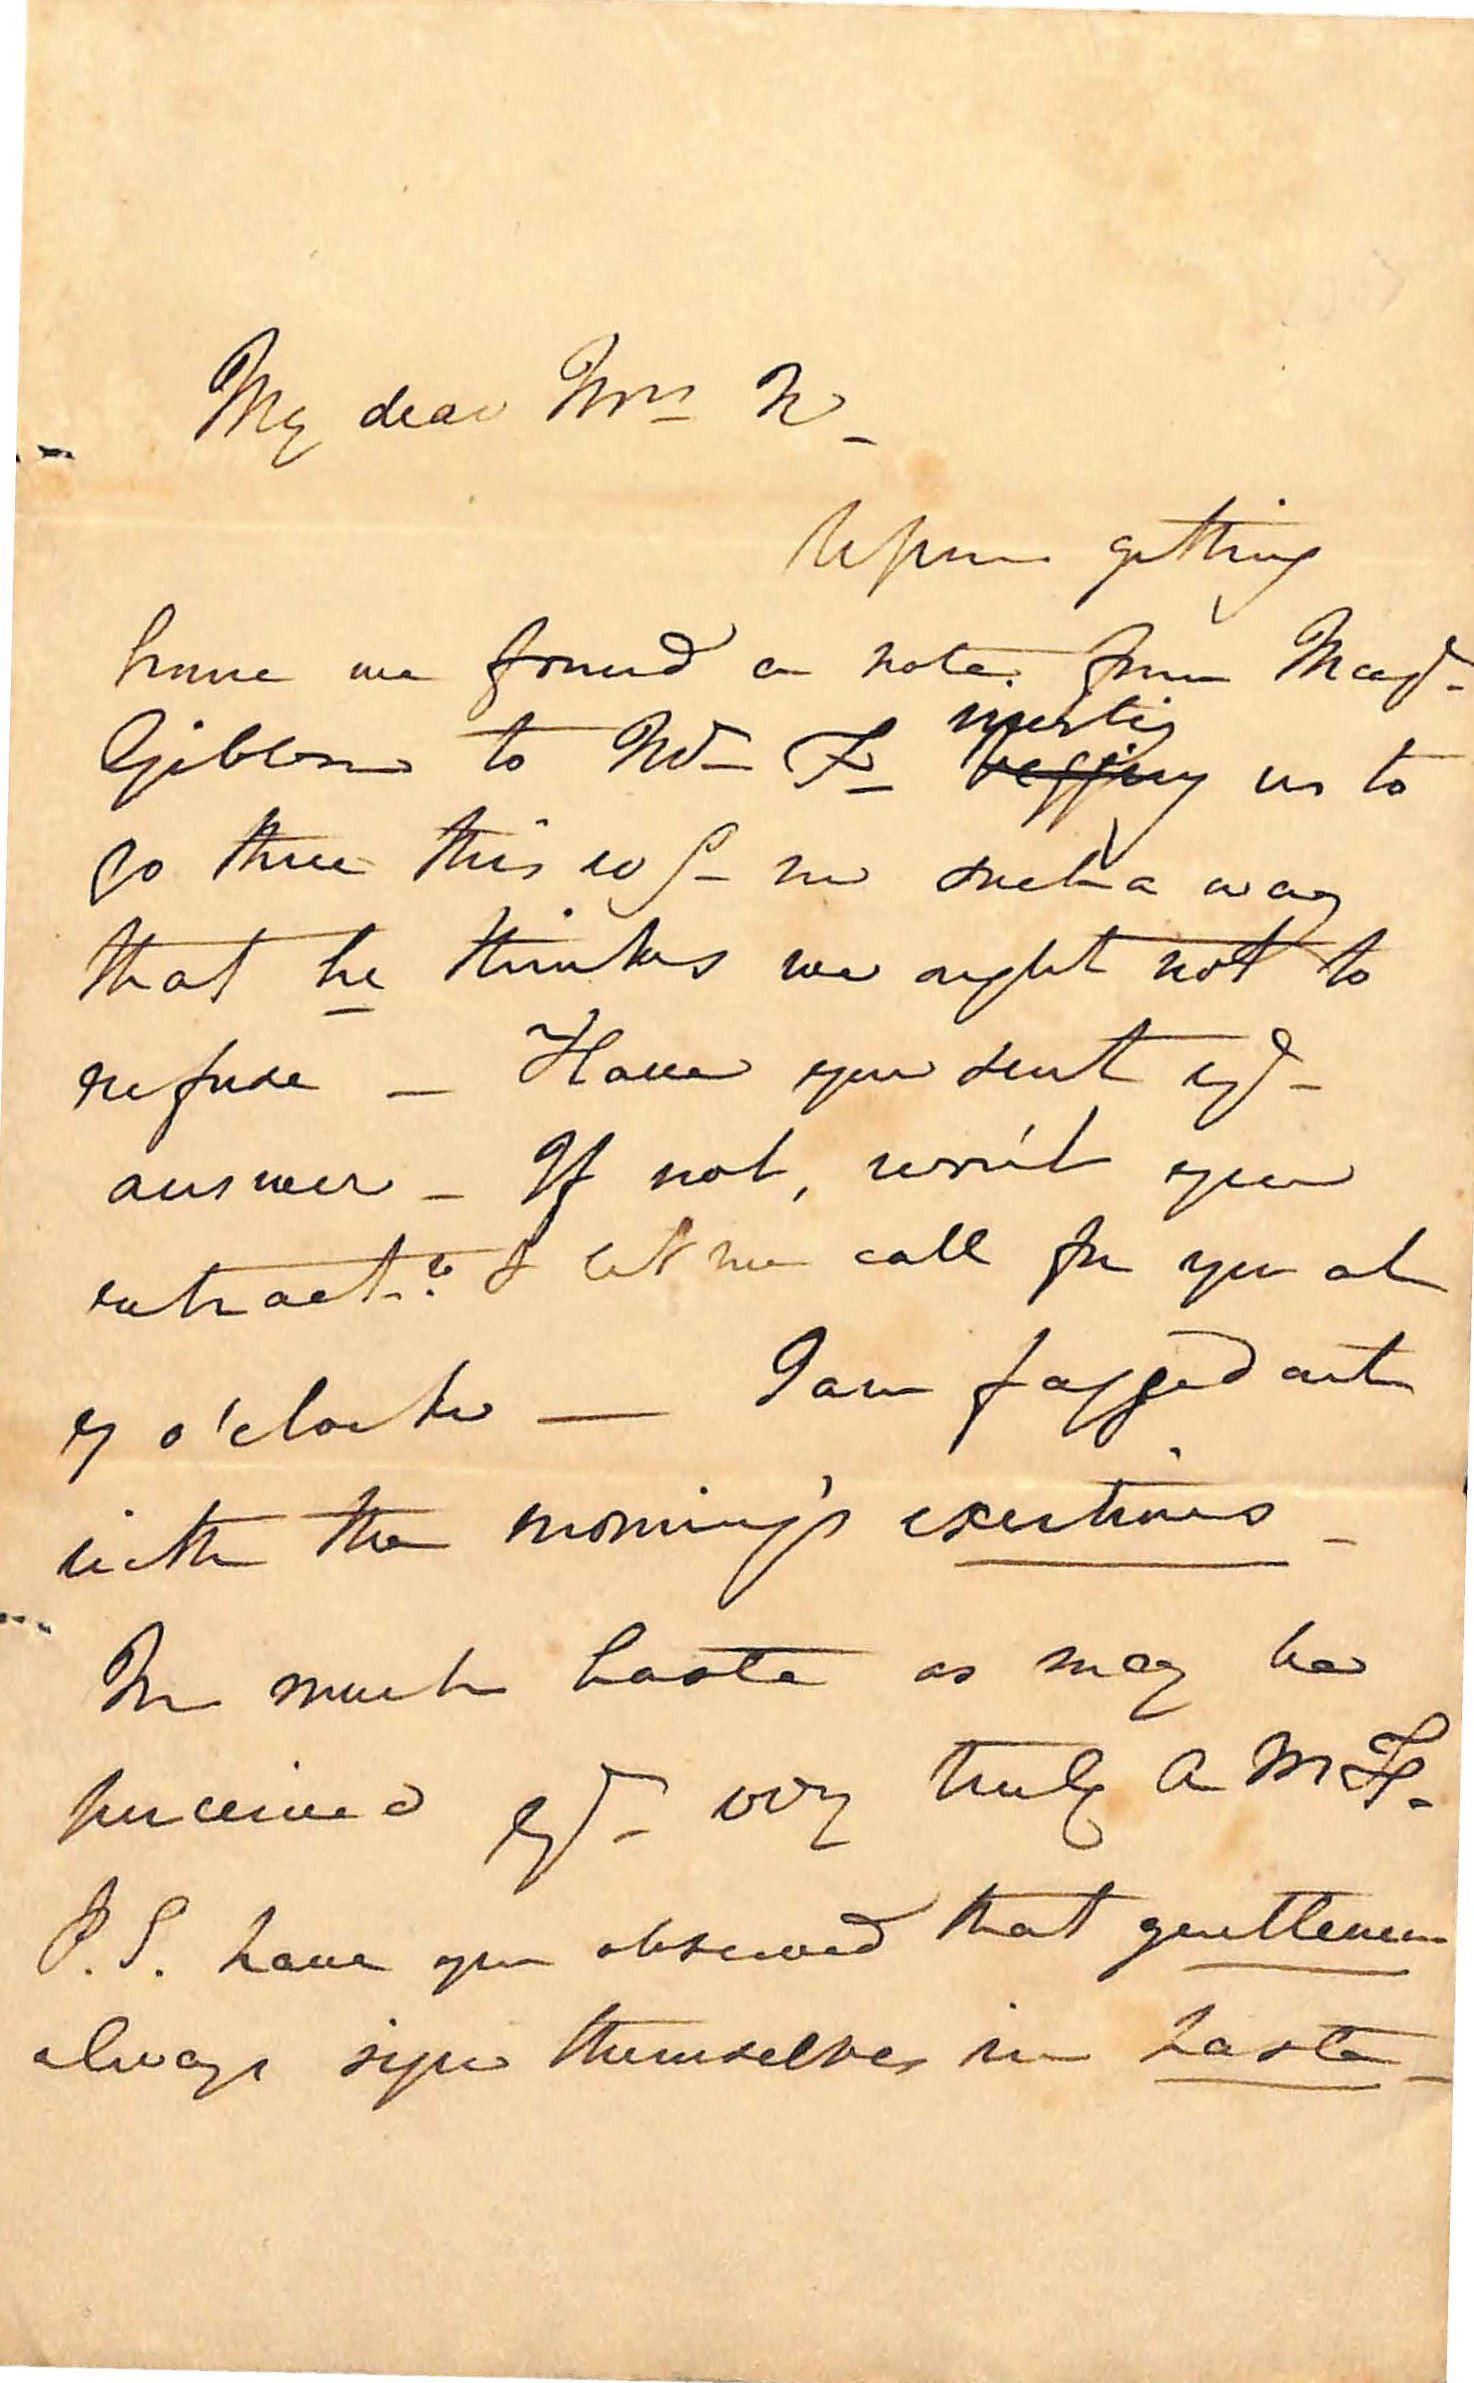 My dear Mrs N_
Upon getting
home we found a note from
Gibbon to Mr_ F_ begging us to
go there this evg_ in such a way
that he thinks we ought not to
refuse _ Have you sent yr_
answer _ If not, won't you
retract? & let me call for you at
7 o'clock — I am fagged out
with the morning's exertions _
In much haste as may be
perceived yr_ very truly A M F.
P.S. have you observed that gentlemen
always sign themselves in haste _